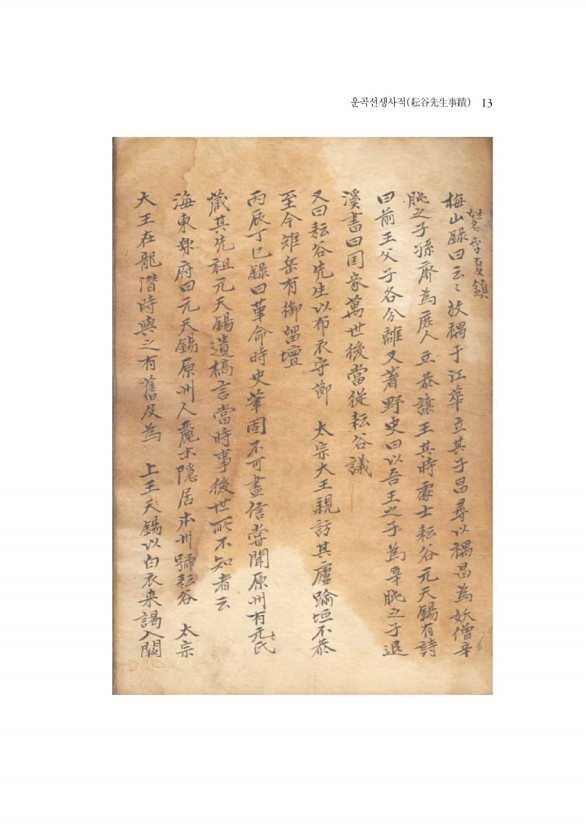 운곡선생사적(耘谷先生事蹟) 13
姓李夏鎮
梅山錄曰云〻放禑于江華立其子昌尋以禑昌為妖僧辛
旽之子孫廢為庶人立恭讓王其時處士耘谷元天錫有詩
曰前王父子各分離又著野史曰以吾王之子為辛旽之子退
溪書曰国家萬世後當從耘谷議
又曰耘谷先生以布衣守節 太宗大王親訪其廬踰垣不恭
至今雉岳有御留壇
丙辰丁巳錄曰革命時史筆固不可盡信嘗聞原州有元氏
藏其先祖元天錫遺稿言當時事後世所不知者云
海東樂府曰元天錫原州人麗末隱居本州歸耘谷 太宗
大王在龍潛時與之有舊及為 上王天錫以白衣来謁入闕